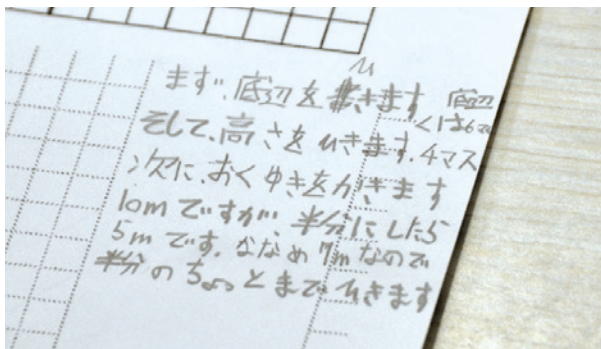 ひ
まず、底辺を書きます 底辺
くは6マス
そして、高さをひきます。4マス
次に、おくゆきをかきます
10mですが、半分にしたら
5mです。ななめ7mなので
半分のちょっとまでひきます